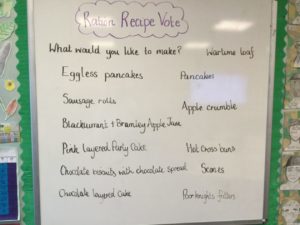 Ration Recipe Vote
What would you like to make?
Eggless pancakes
Sausage rolls
Blackcurrant + Bramley Apple Jam
Pink Layered Party Cake
Chocolate biscuits with chocolate spread
Chocolate layered Cake
Wartime loaf
Pancakes
Apple crumble
Hot cross buns
Scones
Poor knights fritters